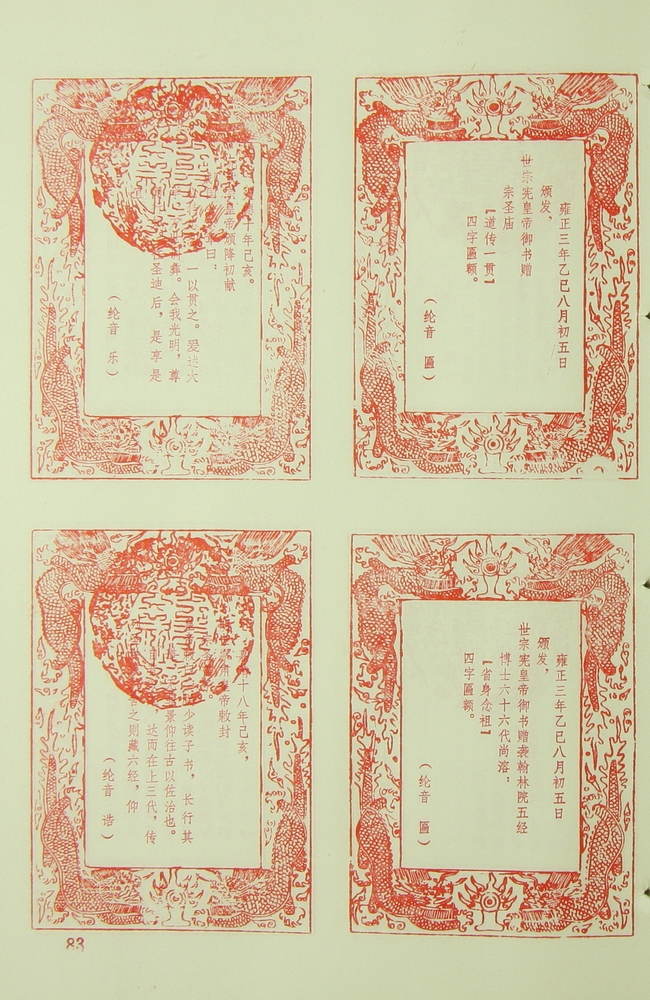 雍正三年乙巳八月初五日
颁发,
世宗宪皇帝御书赠
宗圣庙
『道传一贯』
四字匾额。
(纶音 匾)
十年己亥。
皇帝颁降初献
曰:
一以贯之。爰述大
彝。会我光明,尊
圣迪后,是享是
(纶音 乐)
雍正三年乙巳八月初五日
颁发,
世宗宪皇帝御书赠袭翰林院五经
博士六十六代尚溶:
『省身念祖』
四字匾额。
(纶音 匾)
十八年己亥,
皇帝敕封
少读子书,长行其
景仰往古以佐治也。
达而在上三代,传
之则藏六经,仰
(纶音 浩)
83